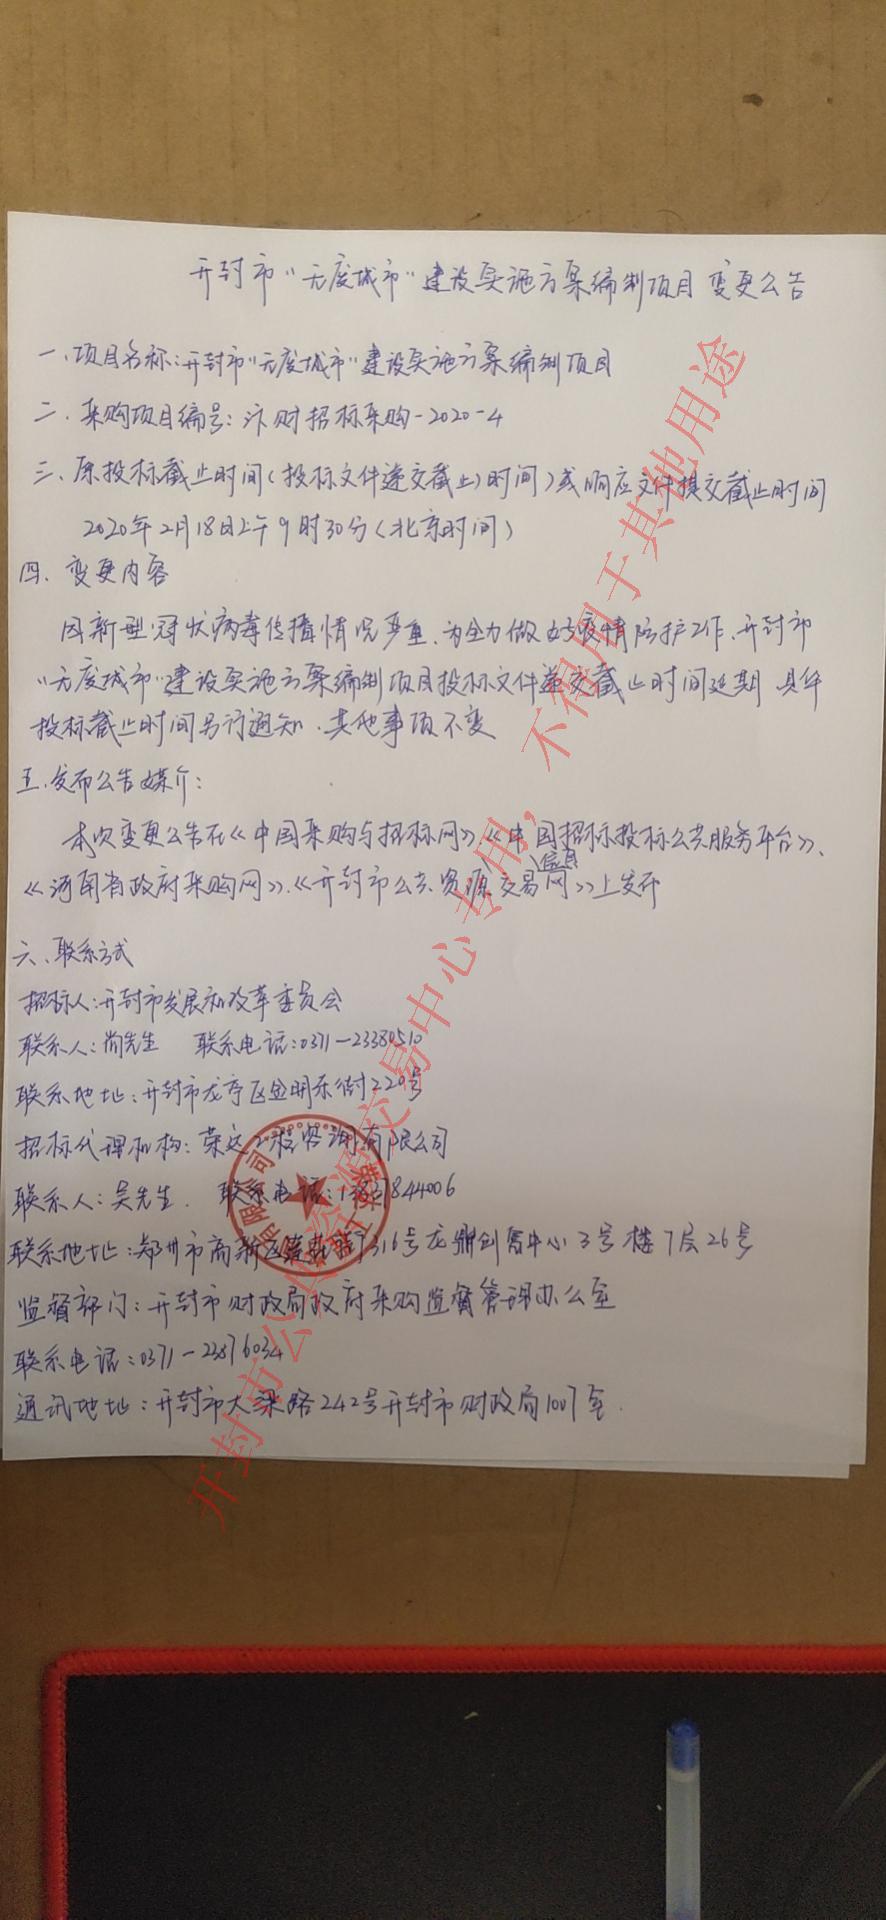 开封市“无废城市”建设实施方案编制项目变更公告
一、项目名称:开封市“无废城市”建设实施方案编制项目
二、采购项目编号:汴财招标采购-2020-4
三、原投标截止时间(投标文件递交截止时间)或响应文件提交截止时间
2020年2月18日上午9时30分(北京时间)
四、变更内容
因新型冠状病毒传播情况严重,为全力做好疫情防护工作,开封市
“无废城市”建设实施方案编制项目投标文件递交截止时间延期,具体
投标截止时间另行通知,其他事项不变
五、发布公告媒介:
本次变更公告在《中国采购与招标网》、《中国招标投标公共服务平台》、
《河南省政府采购网》、《开封市公共资源交易信息网》上发布
六、联系方式
招标人:开封市发展和改革委员会
联系人:尚先生 联系电话:0371-23380510
联系地址:开封市龙亭区金明东街220号
招标代理机构:荣达工程咨询有限公司
联系人:吴先生 联系电话:13837844006
联系地址:郑州市高新区街316号龙鼎创富中心3号楼7层26号
监督部门:开封市财政局政府采购监督管理办公室
联系电话:0371-23876034
通讯地址:开封市大梁路242号开封市财政局1007室.
开封市公共资源交易中心专用,不得用于其他用途